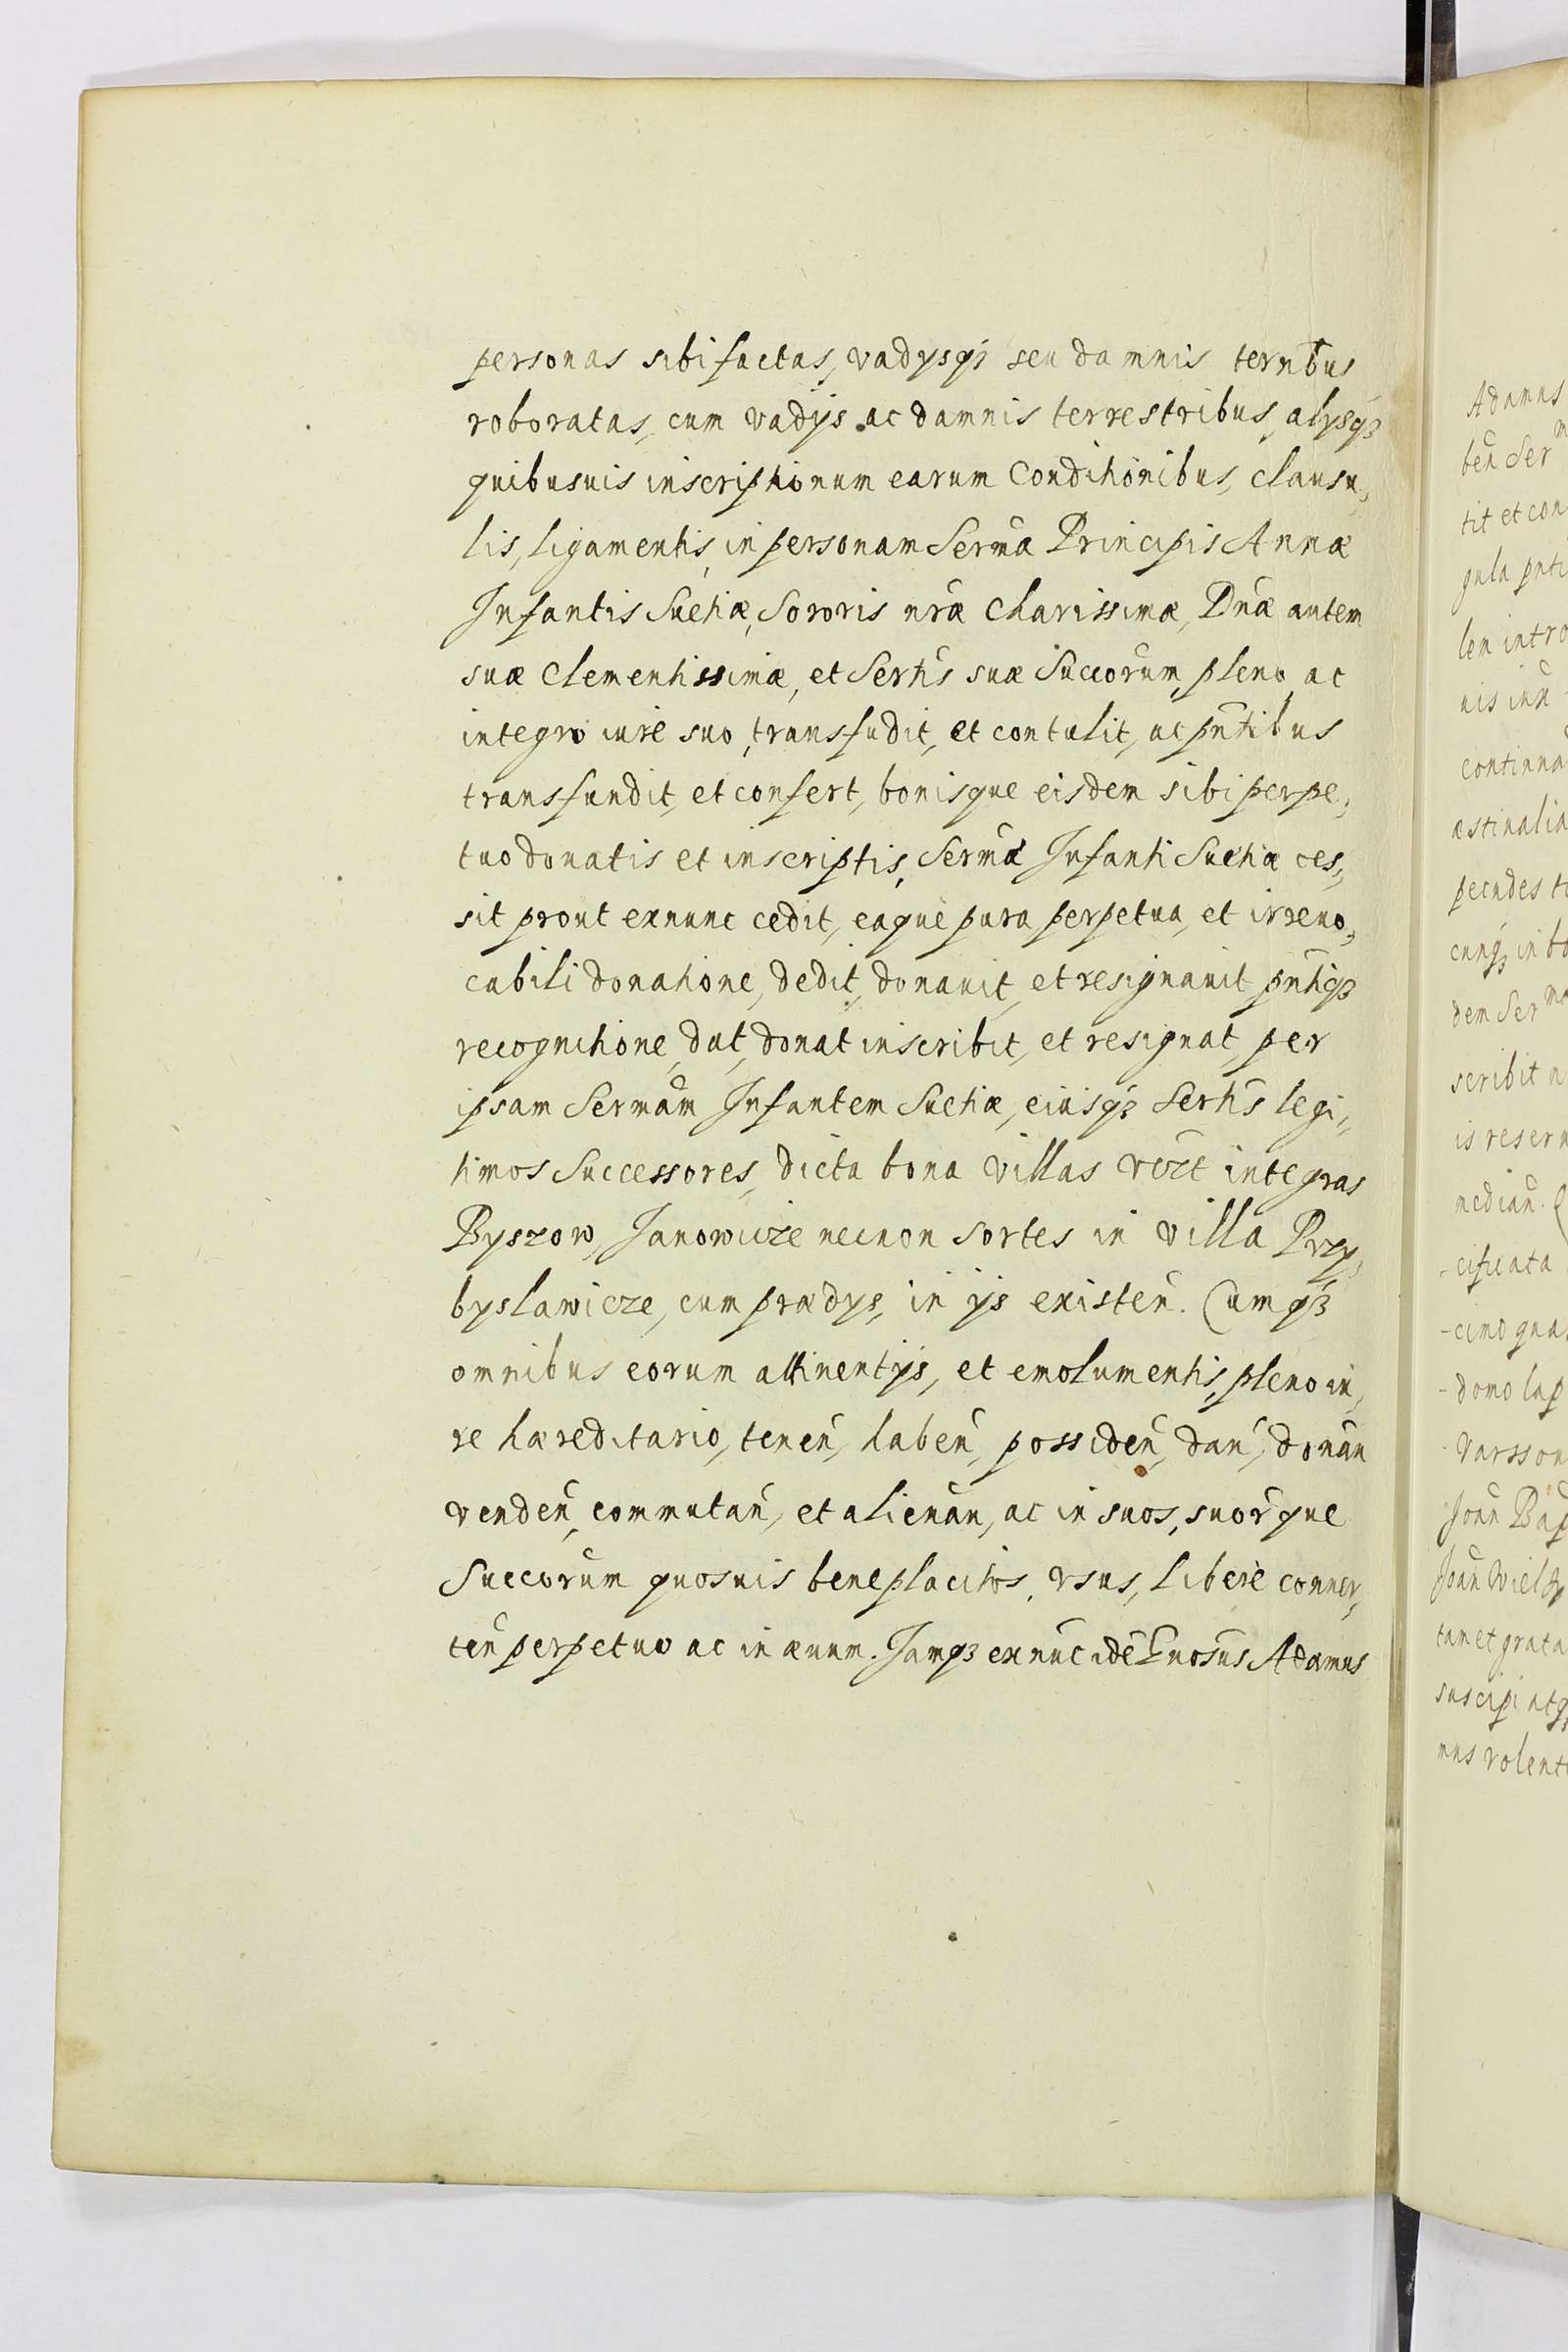 personas sibi factas, vadysqꝫ seu damnis terribus
roboratas, cum vadijs ac damnis terrestribus, alysqꝫ
quibusuis inscriptionum earum Conditionibus, clausu„
lis, ligamentis, in personam Sermæ Principis Annæ
Infantis Suetiæ, Sororis nræ Charissimæ, Dnæ autem
suæ Clementissimæ, et Sertis suæ Succorum, pleno, ac
integro iure suo, transfudit, et contulit, ac pntibus
transfundit, et confert, bonisque eisdem sibi perpe„
tuo donatis et inscriptis, Sermæ Infanti Suetiæ ces„
sit prout exnunc cedit, eaque pura perpetua, et irreuo„
cabili donatione, dedit, donauit, et resignauit, pntiqꝫ
recognitione, dat, donat inscribit, et resignat, per
ipsam Sermam Infantem Suetiæ, eiusqꝫ Sertis legi„
timos Successores, dicta bona villas vizt integras
Byszow, Janowicze necnon sortes in villa Przy„
byslawicze, cum prædys, in ijs existen. Cumqꝫ
omnibus eorum attinentijs, et emolumentis, pleno iu„
re hæreditario, tenen, haben, possiden, dan, donan
venden, commutan, et alienan, ac in suos, suorque
Succorum quosuis beneplacitos, vsus, libere conuer„
ten perpetuo ac in æuum. Jamqꝫ exnuc idē Gnosus Adamus
Adamus
ben Ser
tit et con
gula pnti
lem intro
uis iux
continua
æstiualia
pecudes
cunqꝫ in bo
dem Ser
scribit
is reseru
median.
-cificata
-cimo qua
-domo lap
Varsson
Joan Bap
Joan Wielo
tam et grata
suscipi atq
mus volent